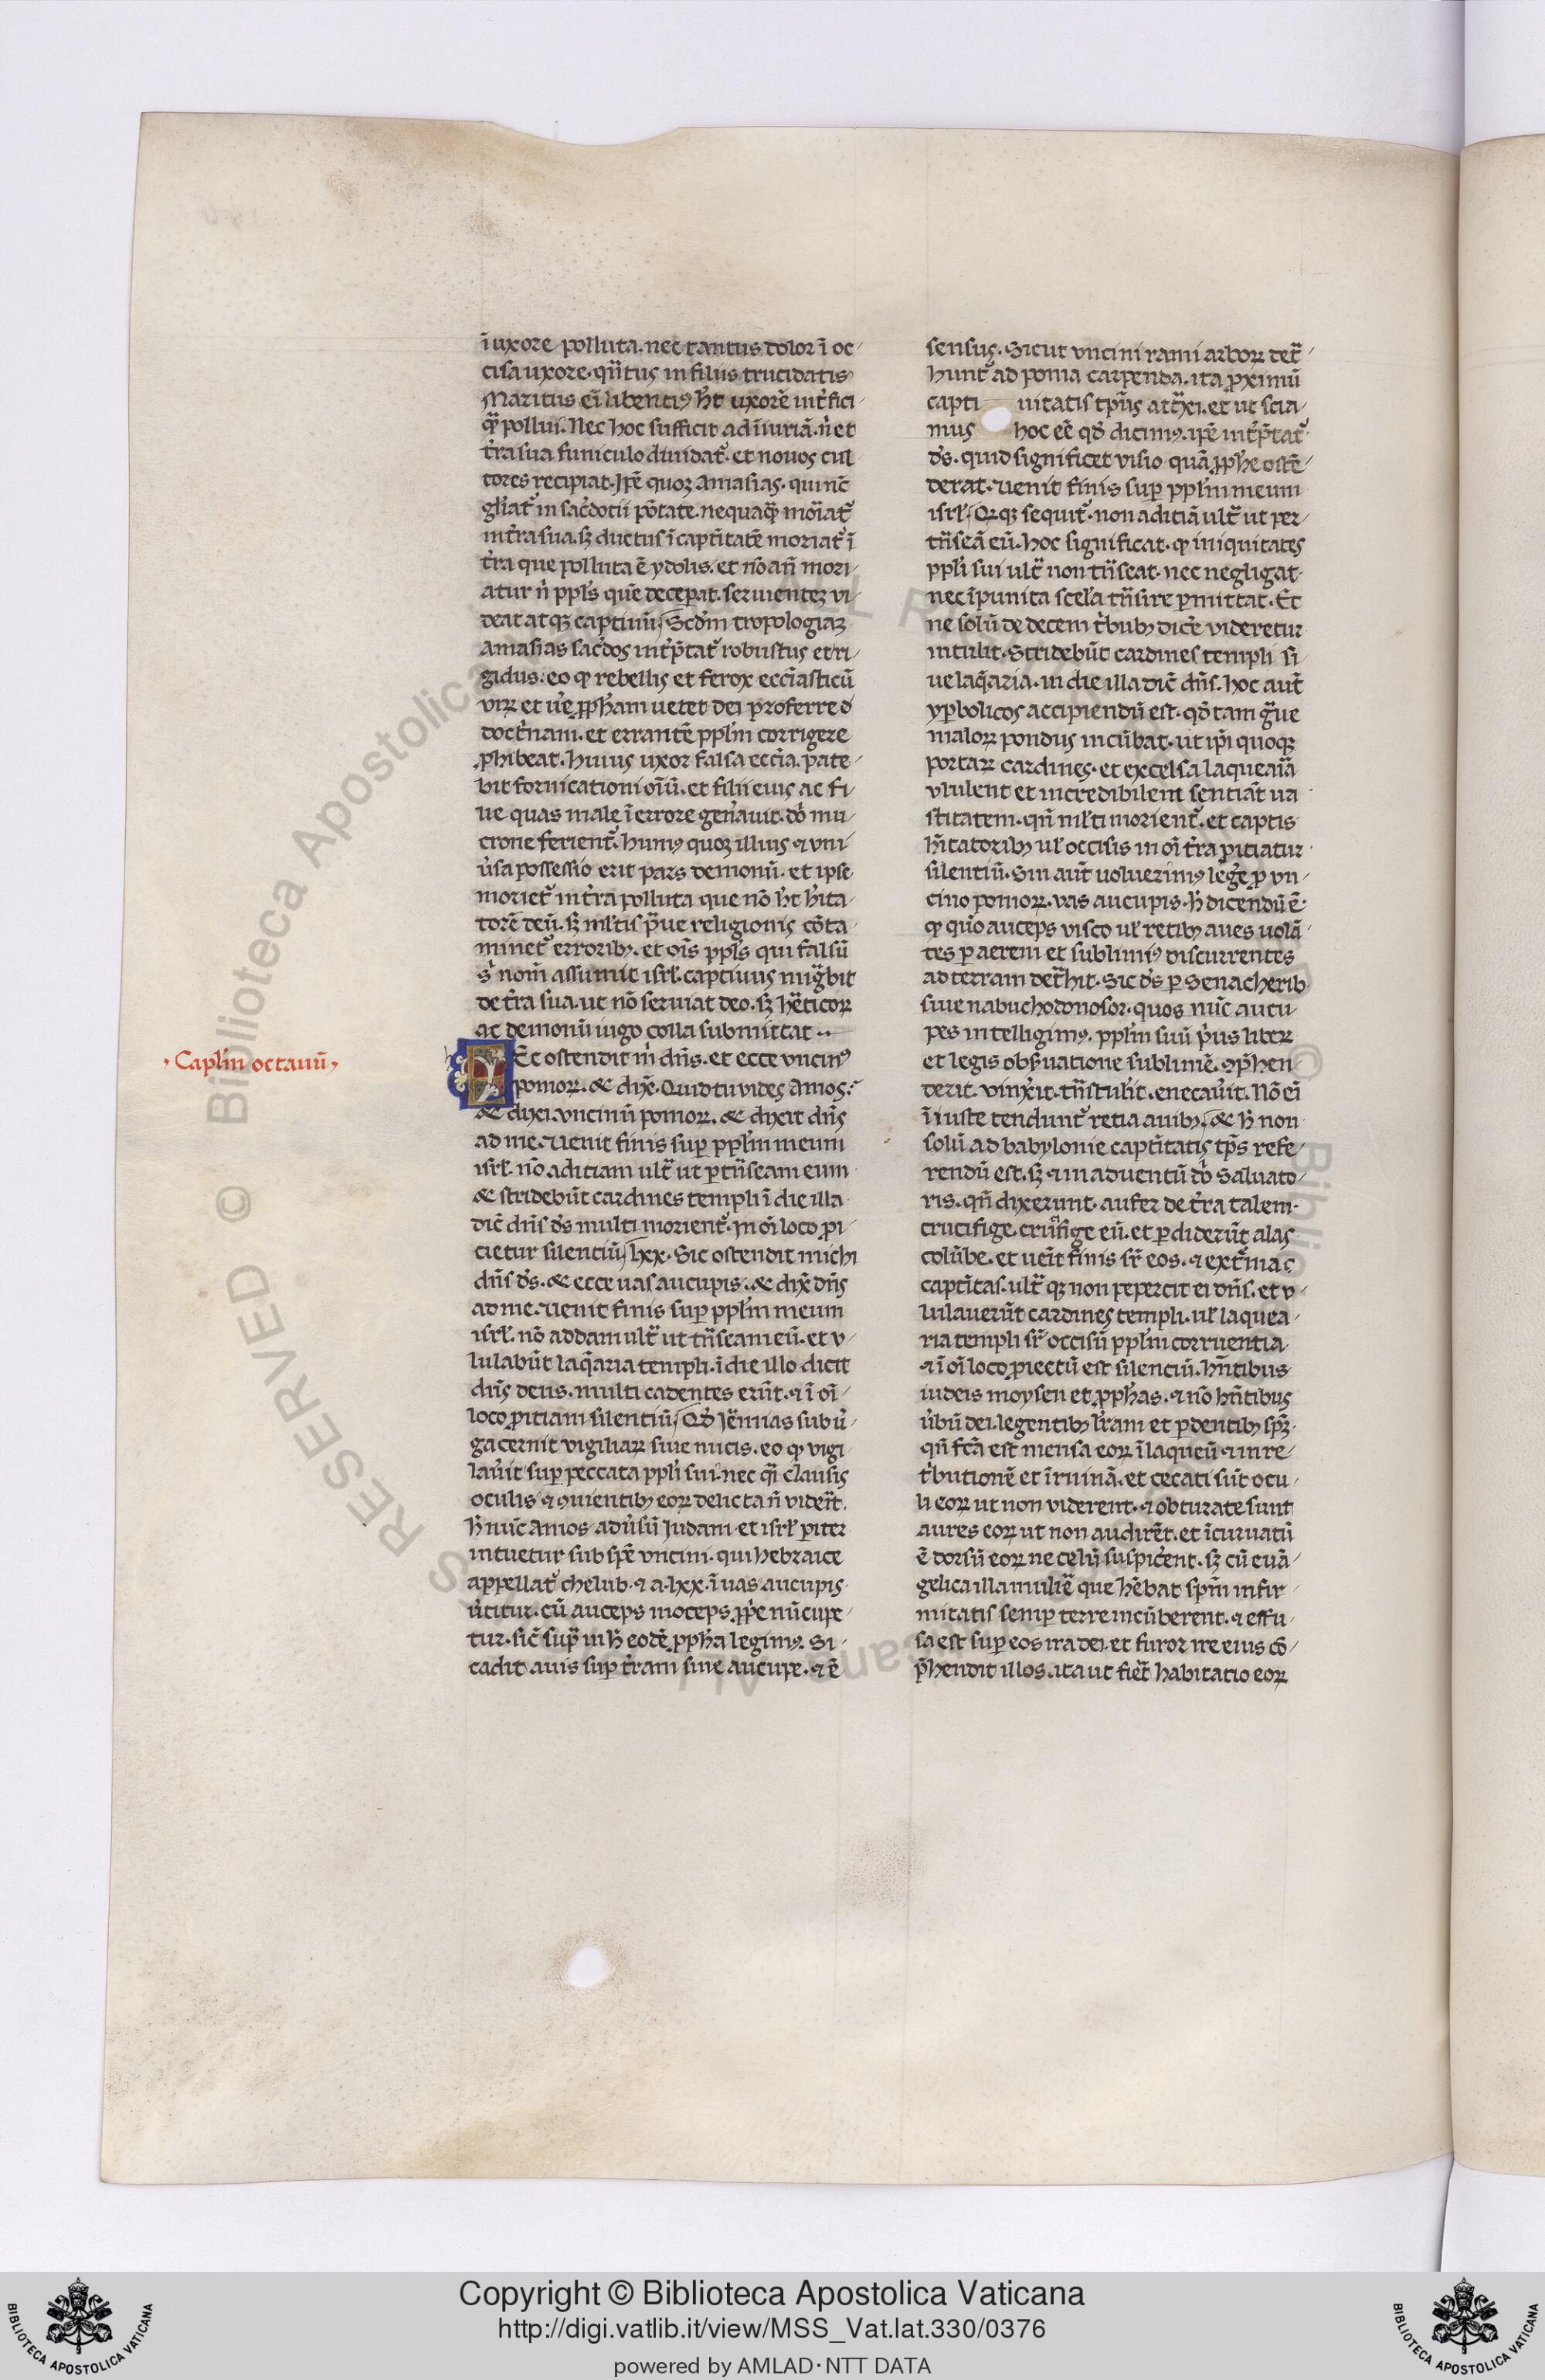 ĩ uxore polluta. nec tantus dolor ĩ oc
cisa uxore. qͣntus in filiis trucidatis
Maritus eĩ libentiꝰ hꝫt uxorẽ int̾fici
qͣ̃ pollui. Nec hoc sufficit ad iniuriã. n̾ et
t̾ra sua funiculo diuidat᷑. et nouos cul
tores recipiat. Ip̃e quoqꝫ Amasias. qui nũc
gl̾iat᷑ in sac̾dotii põtate. nequaqͣ̃ moriat᷑
in t̾ra sua. sꝫ ductus ĩ captiͥtatẽ moriat᷑ ĩ
t̾ra que polluta ẽ ydolis. et nõ añ mori
atur n̾ ppl̾s quẽ deceꝑat. seruientez vi
deat atqꝫ captiuũ. Scd̾m tropologiaꝫ
amasias sac̾dos int̾p̃tat᷑ robustus et ri
gidus. eo ꝙ rebellis et ferox eccl̾iasticũ
virꝫ et ue ꝓph̃am uetet dei proferre
doct̾nam. et errantẽ ppl̾m corrigere
ꝓhibeat. huius uxor falsa eccl̾ia. pate
bit fornicationi oĩũ. et filii eius ac fi
lie quas male ĩ errore gen̾auit. dõ mu
crone ferient᷑. humꝰ quoqꝫ illius ⁊ vni
u̾sa possessio erit pars demonũ. et ipse
moriet᷑ in t̾ra polluta que nõ hꝫt hĩta
torẽ deũ. sꝫ ml̾tis pͣue religionis cõta
minet᷑ erroribꝫ. et oĩs ppl̾s qui falsũ
s̾ nom̃ assumit isrl̾. captiuus migͣbit
de t̾ra sua. ut nõ seruiat deo. sꝫ hẽticorꝝ
ac demonũ iugo colla submittat
· Capl̾m octauũ ·
Ec ostendit m̾ dñs. et ecce vncinꝰ
pomorꝝ. & dix̃. Quid tu vides Amos.
& dixi. vncinũ pomorꝝ. & dixit dñs
ad me. Uenit finis suꝑ ppl̾m meum
isrl̾. nõ aditiam ult̾ ut ꝑtͣnseam eum
& stridebũt cardines templi ĩ die illa
dic̃ dñs d̃s multi morient᷑. ĩn oĩ loco ꝓi
cietur silenciũ. lxx. Sic ostendit michi
dñs d̃s. & ecce uas aucupis. & dix̃ dñs
ad me. Uenit finis suꝑ ppl̾m meum
isrl̾. nõ addam ult̾ ut tͣnseam eũ. et v
lulabũt laqͣaria templi. ĩ die illo dicit
dñs deus. multi cadentes erũt. ⁊ ĩ oĩ
loco ꝓitiam silentiũ. Qd̾ Jeremias sub u̾
ga cernit vigiliarꝝ siue nucis. eo ꝙ vigi
lau̾it suꝑ peccata ppl̾i sui. nec qͣi clausis
oculis ⁊ ꝯniuentibꝫ eorꝝ delicta ñ vider̃t.
h̾ nũc Amos adu̾sũ Judam et isrl̾ ꝑiter
intuetur sub spẽ vncini. qui hebraice
appellat᷑ chelub. ⁊ a. lxx. ĩ uas aucupis
u̾titur. cũ auceps inoceps ꝓp̾e nũcupe
tur. sic̃ supͣ in h̾ eodẽ ꝓph̃a legimꝰ. Si
cadit auis suꝑ t̾ram siue aucupe. ⁊ ẽ
sensus. Sicut vncini rami arborꝝ detͣ
hunt᷑ ad poma carpenda. ita ꝓximũ
capti uitatis tp̃s attͣxi. et ut scia
mus hoc eẽ qd̾ dicimꝰ. ip̃e int̾p̃tat᷑
d̃s. quid significet visio quã ꝓphe ostẽ
derat. Uenit finis suꝑ ppl̾m meum
isrl̾. Qꝫ qꝫ sequit᷑. non aditiã ult̾ ut per
tͣnseã eũ. hoc significat. ꝙ iniquitates
ppl̾i sui ult̾ non tͣnseat. nec negligat.
nec ĩpunita scel̾a tͣnsire ꝑmittat. Et
ne solũ de decem t̾bubꝫ dic̾e videretur
intulit. Stridebũt cardines templi si
ue laqͣaria. in die illa dic̃ dñs. hoc aut̃
yꝑbolicos accipiendũ est. qd̾ tam gͣue
malorꝝ pondus incũbat. ut ip̃i quoqꝫ
portarꝝ cardines. et excelsa laqueaͥa
vlulent et incredibilem sentiãt ua
stitatem. qñ ml̾ti morient᷑. et captis
hĩtatoribꝫ ul̾ occisis in oĩ t̾ra ꝓitiatur
silentiũ. Sin aut̃ uoluerimꝰ leg̾e ꝓ vn
cino pomorꝝ. uas aucupis. h̾ dicendũ ẽ.
ꝙ quõ auceps visco ul̾ retibꝫ aues uolã
tes ꝑ aerem et sublimiꝰ discurrentes
ad terram detͣhit. Sic d̃s ꝑ Senacherib
siue nabuchodonosor. quos nũc aucu
pes intelligimꝰ. ppl̾m suũ pͥus liber
et legis obs̾uatione sublimẽ. ꝯp̃hen
derit. vinx̾it. tͣnstul̾it. enecau̾it. Nõ eĩ
ĩiuste tendunt᷑ retia auibꝫ. & h̾ non
solũ ad babylonie captiͥtatis tp̃s refe
rendũ est. sꝫ ⁊ in aduentũ dñi Saluato
ris. qñ dixerunt. aufer de t̾ra talem.
crucifige. crucifige eũ. et ꝑdiderũt alas
colũbe. et uẽit finis sr̃ eos. ⁊ extͣma c
captiͥtas. ult̾ qꝫ non pepercit ei dñs. et v
lulauerũt cardines templi. ul̾ laquea
ria templi sr̃ occisũ ppl̾m corruentia
⁊ ĩ oĩ loco ꝓiectũ est silenciũ. hñtibus
iudeis moysen et ꝓph̃as. ⁊ nõ hñtibus
u̾bũ dei. legentibꝫ lr̃am et ꝑdentibꝫ sp̃ꝫ.
qñ fc̃a est mensa eorꝝ ĩ laqueũ ⁊ in re
t̾butionẽ et ĩ ruinã. et cecati sũt ocu
li eorꝝ ut non viderent. ⁊ obturate sunt
aures eorꝝ ut non audirẽt. et ĩcuruatũ
ẽ dorsũ eorꝝ ne celũ suspic̾ent. sꝫ cũ euã
gelica illa muliẽ que hẽbat sp̃m infir
mitatis semꝑ terre incũberent. ⁊ effu
sa est suꝑ eos ira dei. et furor ire eius cõ
p̃hendit illos. ita ut fier̃t habitatio eorꝝ
Copyright © Biblioteca Apostolica Vaticana
http://digi.vatlib.it/view/MSS_Vat.lat.330/0376
powered by AMLAD·NTT DATA
BIBLIOTECA APOSTOLICA VATICANA
BIBLIOTECA APOSTOLICA VATICANA